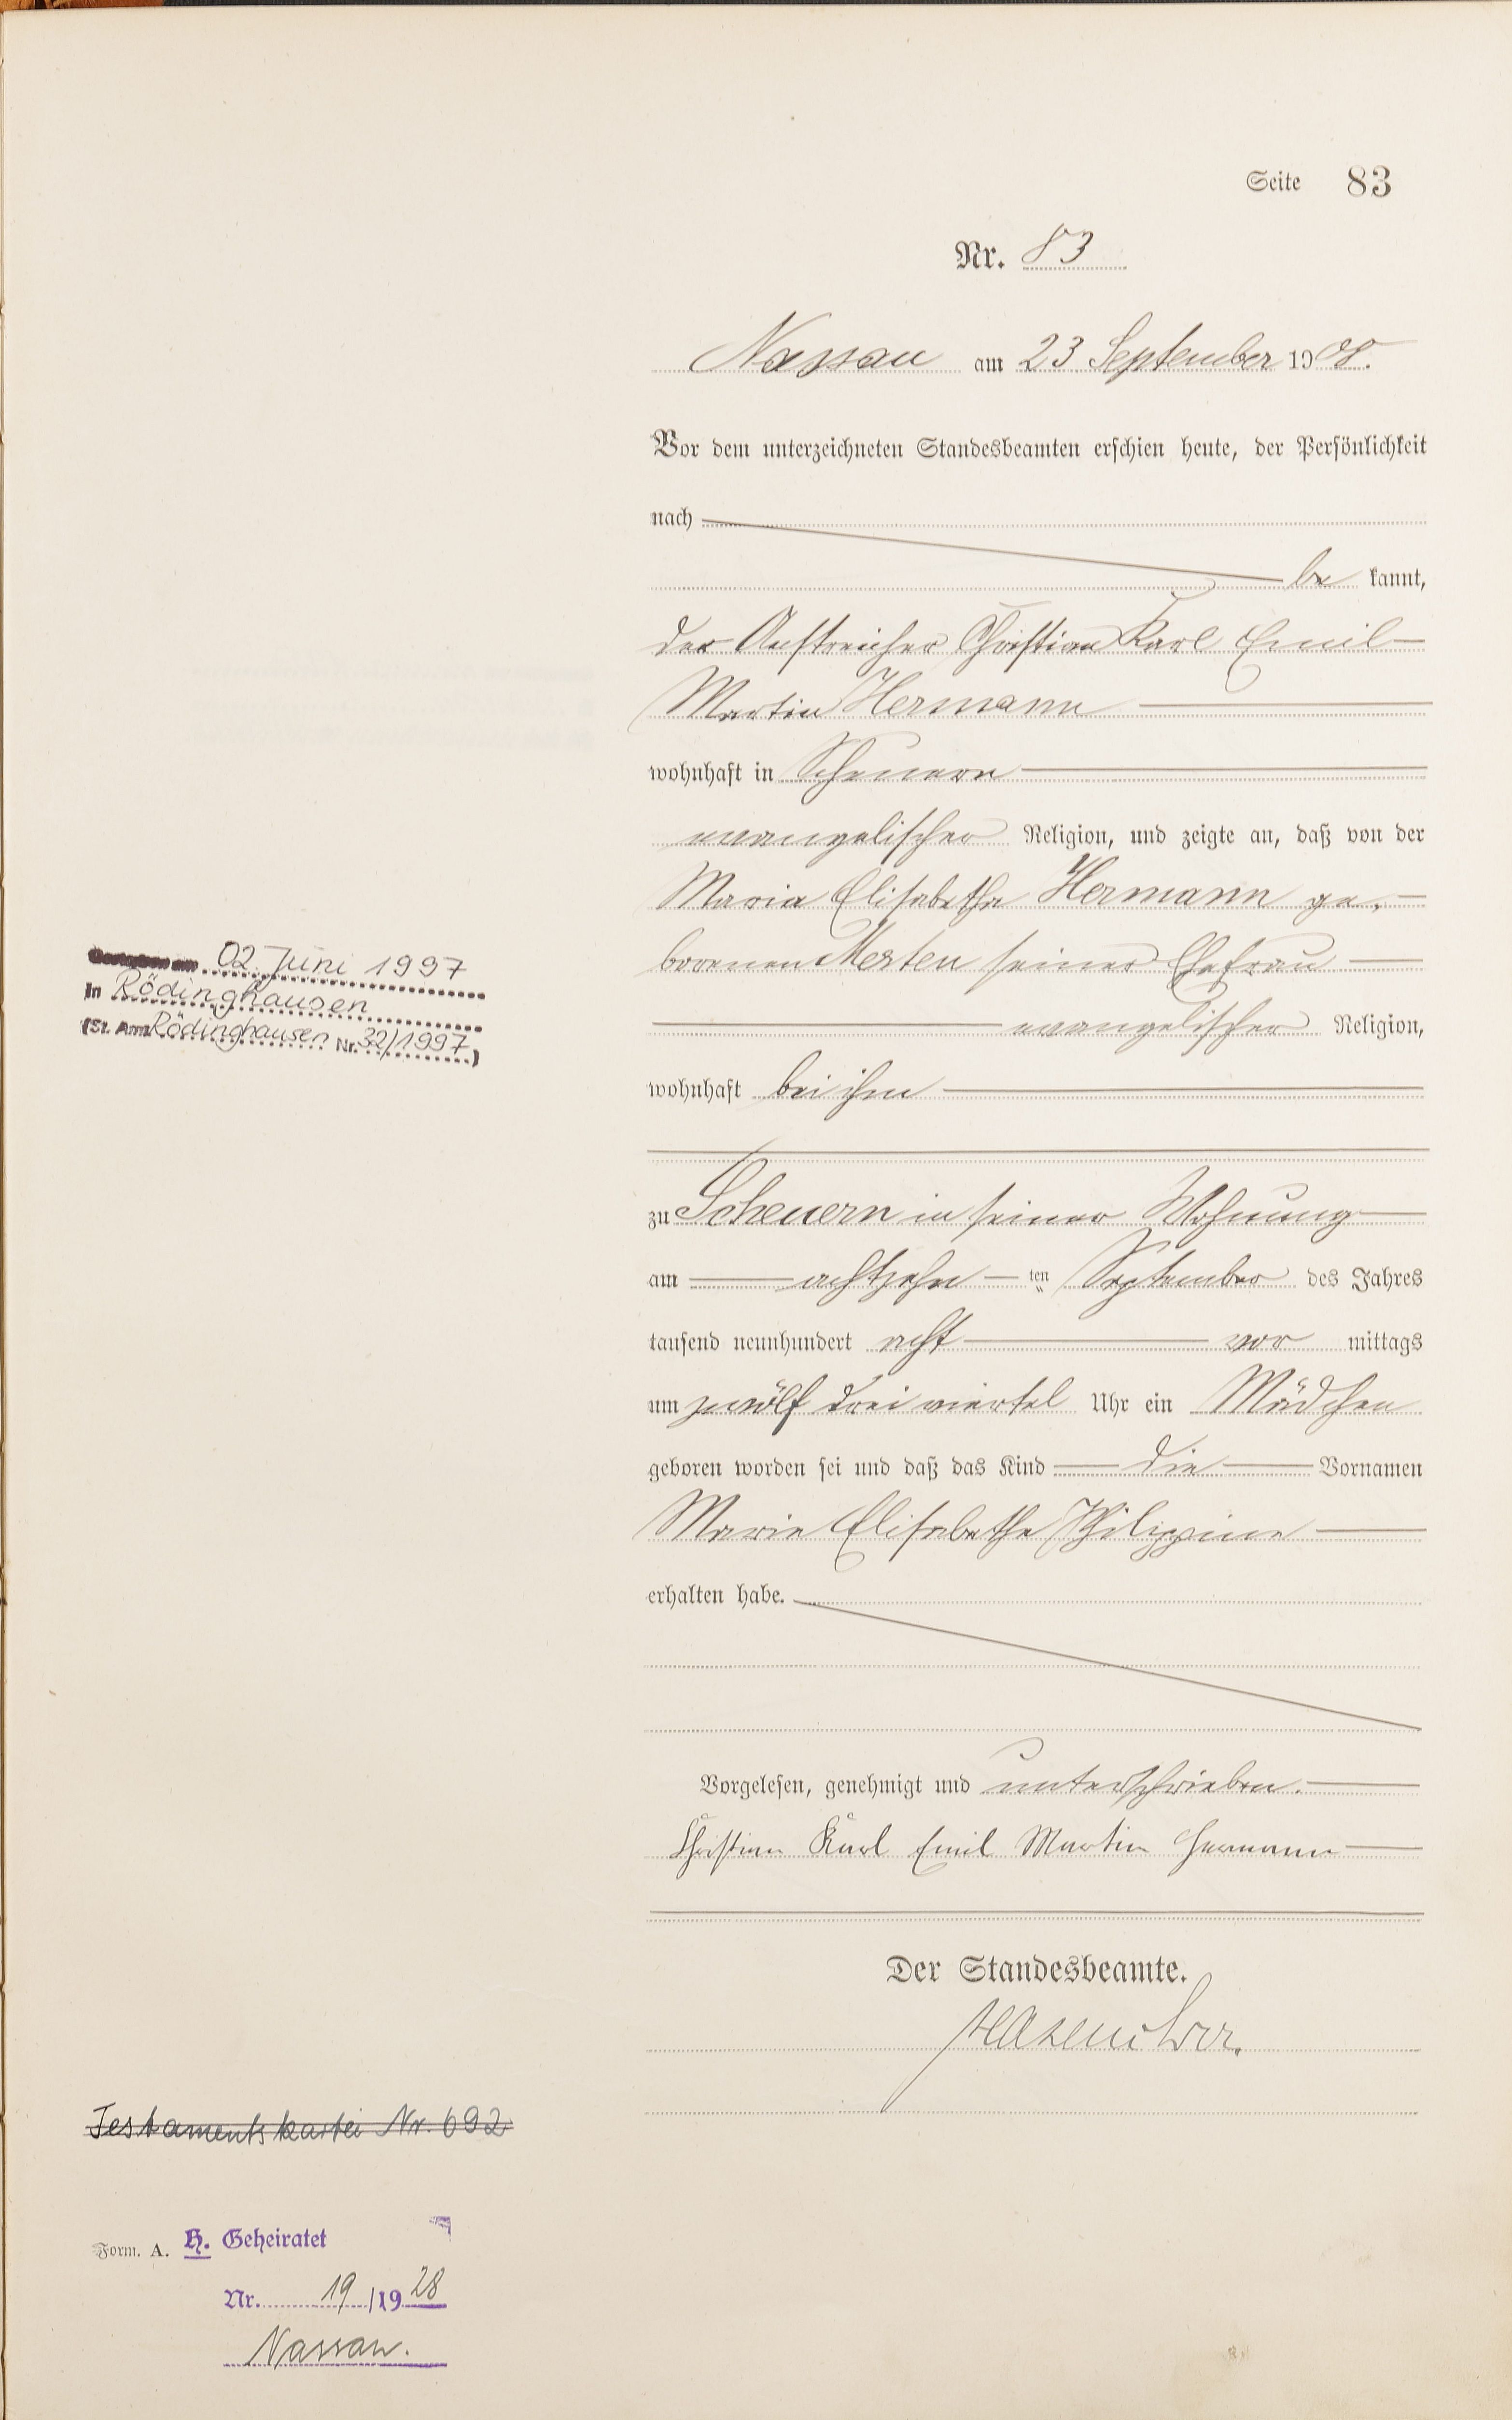 Seite 83
Nr. 83
Nassau am 23 September 1908.
Vor dem unterzeichneten Standesbeamten erschien heute, der Persönlichkeit
nach
be kannt,
der Anstreicher Christian Karl Emil
Martin Hermann
wohnhaft in Scheuern
evangelischer Religion, und zeigte an, daß von der
Maria Elisabetha Hermann ge-
borenen Merten seiner Ehefrau
evangelischer Religion,
wohnhaft bei ihm
zu Scheuern in seiner Wohnung
am achtzehn ten September des Jahres
tausend neunhundert acht vor mittags
um zwölf drei viertel Uhr ein Mädchen
geboren worden sei und daß das Kind die Vornamen
Marie Elisabethe Philippine
erhalten habe.
Vorgelesen, genehmigt und unterschrieben.
Christian Karl Emil Martin Hermann
Der Standesbeamte.
02. Juni 1997
In Rödinghausen
(St. Amt Rödinghausen Nr. 32/1997)
Testamentskartei Nr. 692
Form. A. H. Geheiratet
Nr. 19/1928
Nassau.